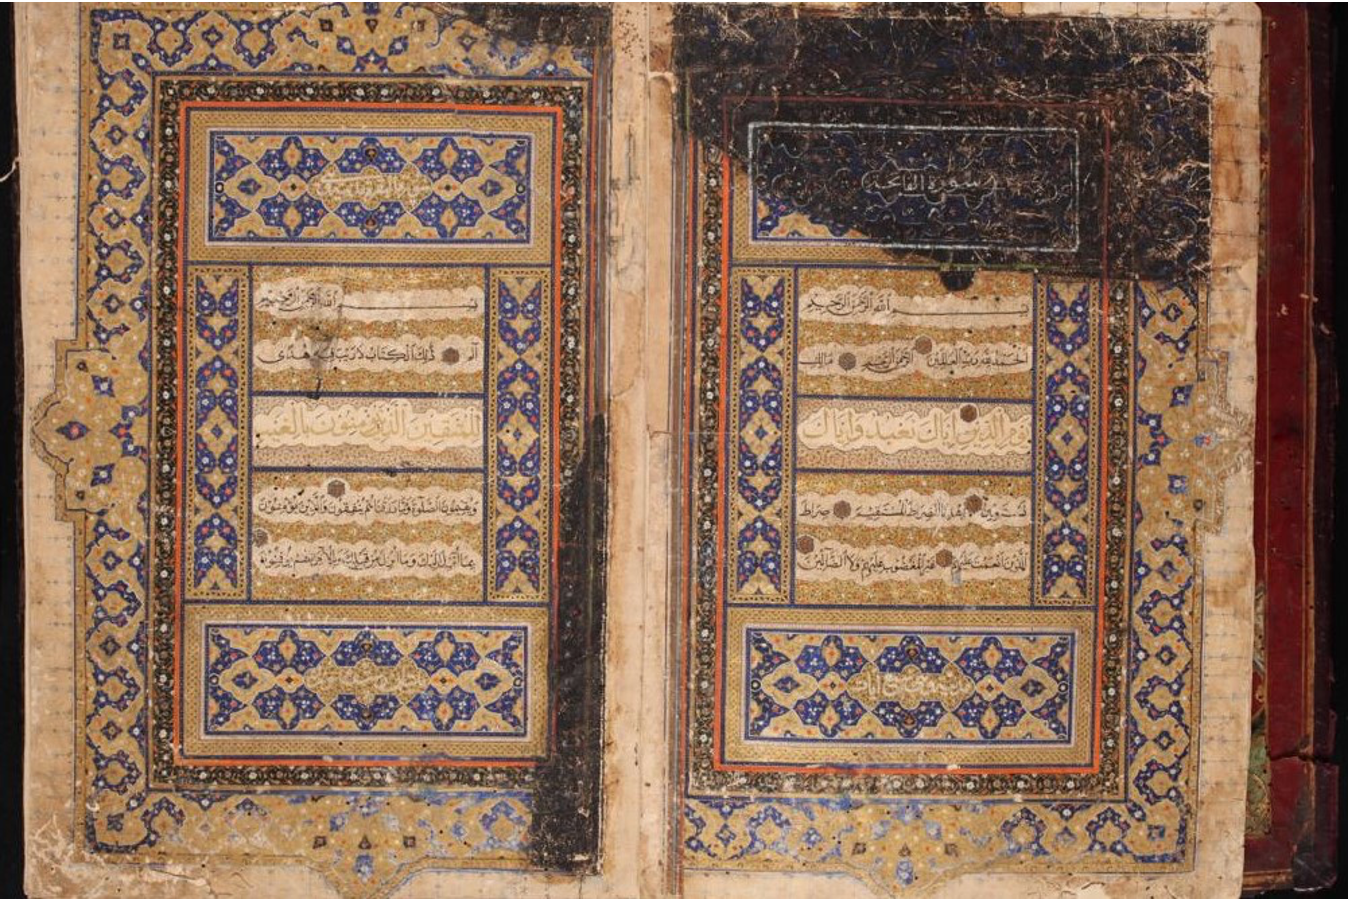 سورة الفاتحة
بسم الله الرحمن الرحيم
الحمد لله رب العالمين الرحمن الرحيم مالك
يوم الدين اياك نعبد واياك
نستعين اهدنا الصراط المستقيم صراط
الذين انعمت عليهم غير المغضوب عليهم ولا الضالين
وهي سبع آيات
سورة البقرة
بسم الله الرحمن الرحيم
الم ذلك الكتاب لا ريب فيه هدى
للمتقين الذين يؤمنون بالغيب
ويقيمون الصلوة ومما رزقناهم ينفقون والذين يؤمنون
بما انزل اليك وما انزل من قبلك وبالاخرة هم يوقنون